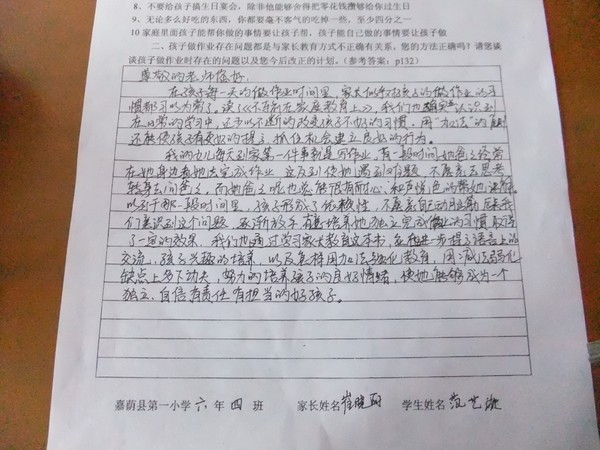 8、不要给孩子搞生日宴会，除非他能够舍得把零花钱攒够给你过生日
9、无论多么好吃的东西，你都要毫不客气的吃掉一些，至少四分之一
10 家庭里面孩子能帮你做的事情要让孩子帮，孩子能自己做的事情要让孩子做
二、孩子做作业存在问题都是与家长教育方式不正确有关系，您的方法正确吗？请您谈
谈孩子做作业时存在的问题以及您今后改正的计划。（参考答案：p132）
尊敬的老师您好：
在孩子每一天的做作业时间里，家长似乎对孩子的做作业的习
惯都习以为常了，读《不百别在家庭教育上》，我们也认识到
在日常的学习中，还要以不断的改变孩子不好的习惯。用“加法”的
还能使孩子有更好的提高，抓住机会建立良好的行为。
我的女儿每天到家第一件事就是写作业，有一段时间她爸爸经常
在她身边看她去完成作业，这反到使她遇到难题，不愿意去思考
转身去问爸爸，而她爸爸呢也总能很有耐心，和声悦色的帮她讲解
以到于那一段时间里，孩子形成了依赖性，不愿意自己动脑筋，后来我
们意识到这个问题，逐渐放手有意培养她独立完成做业的习惯，取得
了一定的效果，我们也通过学习家长教育这本书，在进一步提高语言上的
交流，孩子兴趣的培养，以及怎样用加法强化教育，用减法弱化
缺点上多下功夫，努力的培养孩子的良好情绪，使她能够成为一个
独立，自信有责任有担当的好孩子。
嘉荫县第一小学 六 年 四 班 家长姓名 崔晓丽 学生姓名 范艺